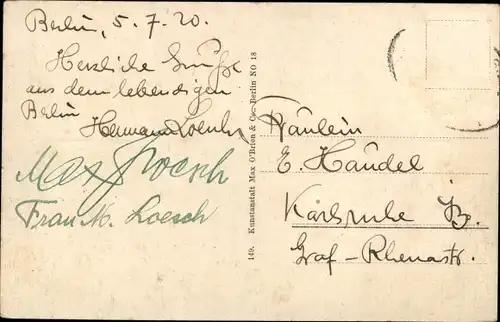 Berlin, 5.7.20.
Herzliche Grüße
aus dem lebendigen
Berlin
Hermann
Max Loesch
Frau M. Loesch
149. Kunstanstalt Max O'Brien & Co., Berlin NO 18
Fräulein
E. Händel
Karlsruhe B.
Graf-Rhenastr.